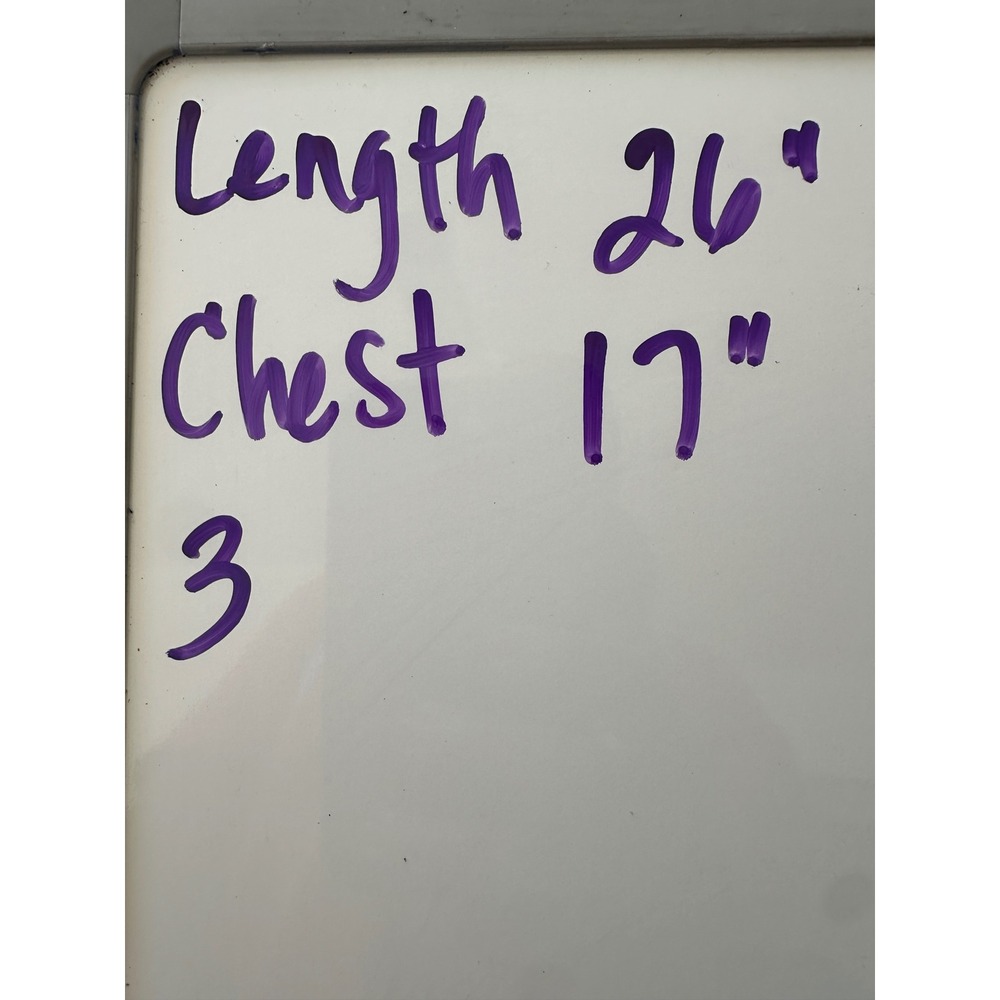 Length 26"
Chest 17"
3